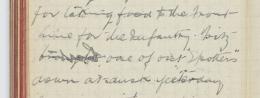 for taking food to the front
line for the Infantry. Fritz
one of our "spotters"
down at dusk yesterday